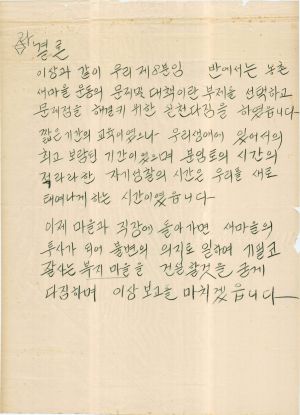 결론
이상과 같이 우리 제8분임 반에서는 농촌
새마을 운동의 문제및 대책이란 부제을 선택하고
문제점을 해결키 위한 실천다짐을 하였읍니다
짧은 기간의 교육이였으나 우리생애에 있어서의
최고 보람된 기간이였으며 분임토의 시간의
적라라한 자기성찰의 시간은 우리를 새로
태여나게 하는 시간이였읍니다
이제 마을과 직장에 돌아가면 새마을의
투사가 되어 불변의 의지로 일하며 기필코
잘사는 복지 마을을 건설할것을 굳게
다짐하며 이상 보고을 마치겠읍니다